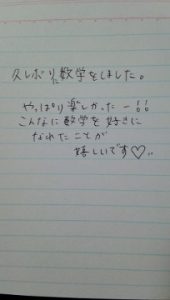 久しぶりに数学をしました。
やっぱり楽しかったー!!
こんなに数学を好きに
なれたことが
嬉しいです♡‥